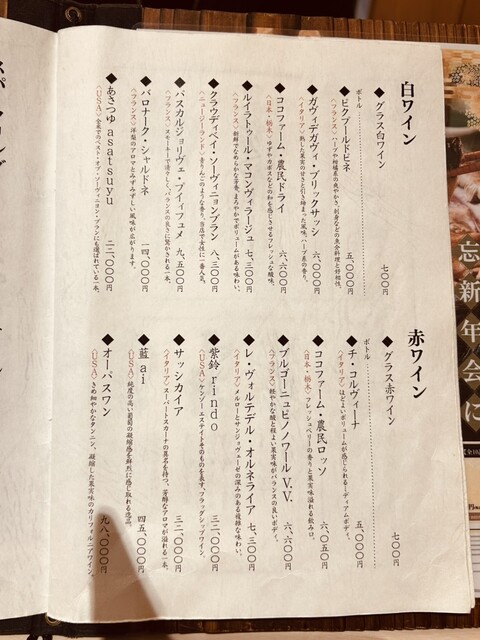 白ワイン
◆グラス白ワイン 七〇〇円
ボトル
◆ピクプールドピネ 五、〇〇〇円
〈フランス〉ハーブや柑橘系の爽やかさ。刺身などの魚介料理と好相性。
◆ガヴィデガヴィ・ブリックサッシ 六、〇〇〇円
〈イタリア〉熟した果実の甘さと引き締まった風味。ハーブ系の香り。
◆ココファーム・農民ドライ 六、六〇〇円
〈日本・栃木〉ゆずやカボスなどの和を感じさせるフレッシュな酸味。
◆ルイラトゥール・マコンヴィラージュ 七、三〇〇円
〈フランス〉新鮮でなめらかな芳香。まろやかでボリュームがある味わい。
◆クラウディベイ・ソーヴィニョンブラン 八、三〇〇円
〈ニュージーランド〉青りんごのような香り。当店で女性に一番人気。
◆パスカルジョリヴェ・プイィフュメ 九、五〇〇円
〈フランス〉スモーキーで清々しく、バランスの良さに驚かされる一本。
◆バロナーク・シャルドネ 一四、〇〇〇円
〈フランス〉洋梨のアロマとみずみずしい風味が広がります。
◆あさつゆ asatsuyu 二二、〇〇〇円
〈USA〉全米でのベスト・オブ・ソーヴィニヨン・ブランにも選ばれている一本。
赤ワイン
◆グラス赤ワイン 七〇〇円
ボトル
◆チ・コルヴィーナ 五、〇〇〇円
〈イタリア〉ほどよいボリュームが感じられるミディアムボディ。
◆ココファーム・農民ロッソ 六、〇五〇円
〈日本・栃木〉フレッシュベリーの香りと果実味溢れる飲み口。
◆ブルゴーニュピノノワール V.V. 六、六〇〇円
〈フランス〉軽やかな酸と程よい果実味がバランスの良いボディ。
◆レ・ヴォルテデル・オルネライア 七、三〇〇円
〈イタリア〉メルローとサンジョヴェーゼの深みのある複雑な味わい。
◆紫鈴 rindo
〈USA〉ケンゾーエステイトそのものを表す、フラッグシップワイン。
◆サッシカイア 三二、〇〇〇円
〈イタリア〉スーパートスカーナの異名を持つ、芳醇なアロマが溢れる一本。
◆藍 ai 四五、〇〇〇円
〈USA〉純度の高い葡萄の凝縮感を鮮烈に感じ取れる逸品。
◆オーパスワン 九八、〇〇〇円
〈USA〉きめ細やかなタンニン。凝縮した果実味のカリフォルニアワイン。
忘新年会に
スパークリング